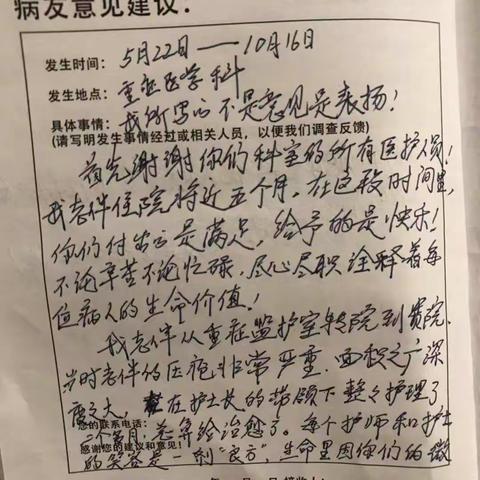 病友意见建议:
发生时间: 5月22日——10月16日
发生地点: 重症医学科
具体事情: 我所写的不是意见是表扬!
(请写明发生事情经过或相关人员,以便我们调查反馈)
首先谢谢你们科室的所有医护人员!
我老伴住院将近五个月,在这段时间里,
你们付出的是满足,给予的是快乐!
不论辛苦不论忙碌,尽心尽职诠释着每
位病人的生命价值!
我老伴从重症监护室转院到贵院,
当时老伴的压疮非常严重,面积之广深
度之大,在护士长的带领下整整护理了
您的联系电话:
二个多月,总算给治愈了。每个护师和护士
感谢您的建议和意见!
的笑容是一剂“良方”,生命里因你们的微